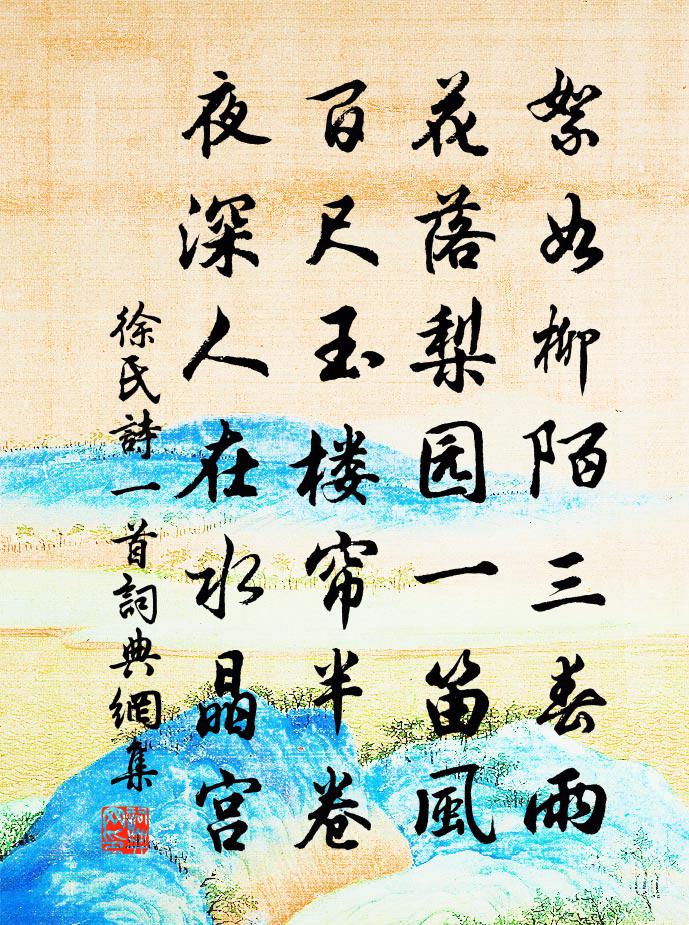 絮如柳陌三春雨
花落梨园一笛風
百尺玉楼帘半卷
夜深人在水晶宫
徐氏詩一首詞典網集